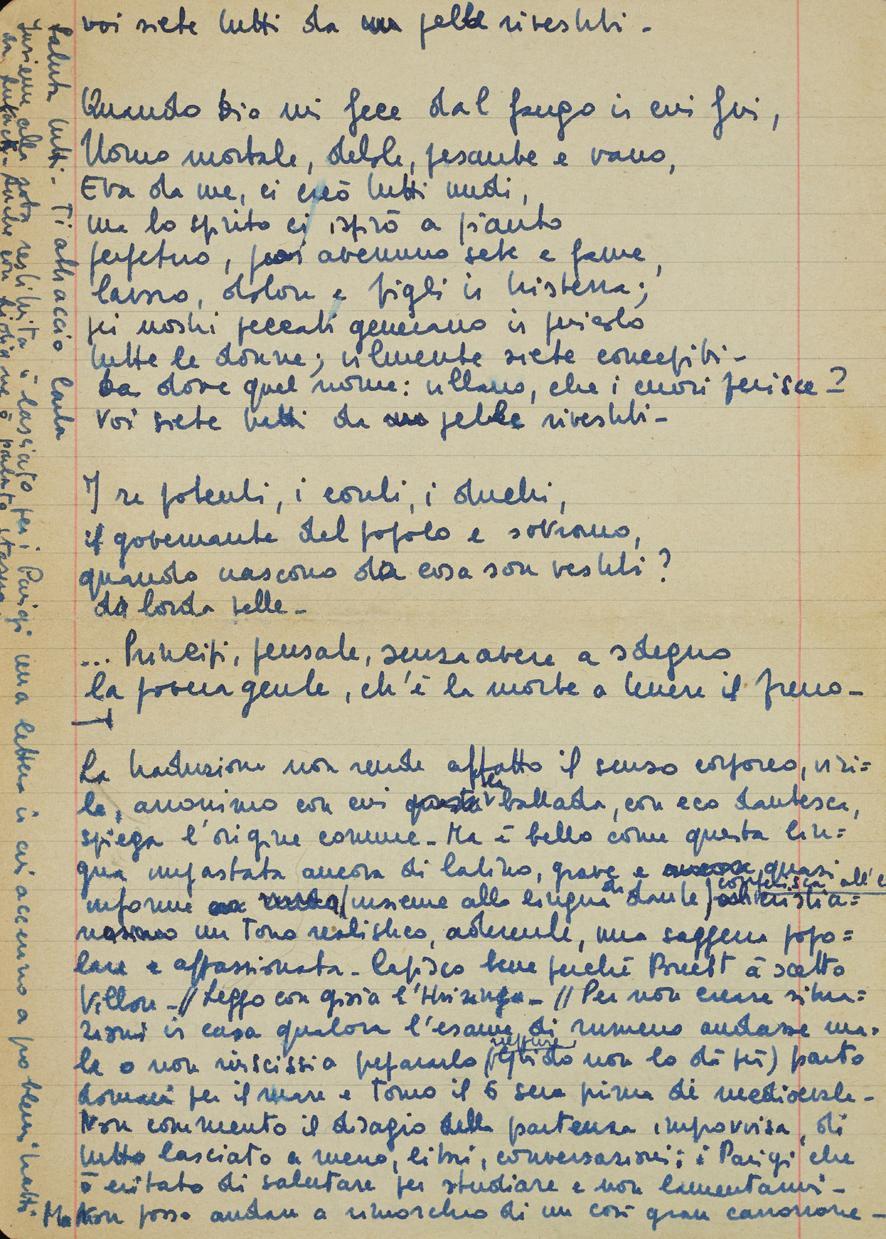 voi siete tutti da una pelle rivestiti -
Quando Dio mi fece dal fango in cui fui,
Uomo mortale, debole, pesante e vano,
Eva da me, ci creò tutti nudi,
ma lo spirito ci ispirò a pianto
perpetuo, poi avemmo sete e fame,
lavoro, dolore e figli in tristezza;
pei nostri peccati generano in pericolo
tutte le donne; vilmente siete concepiti -
Da dove quel nome: villano, che i cuori ferisce?
Voi siete tutti da una pelle rivestiti -
I re potenti, i conti, i duchi,
il governante del popolo e sovrano,
quando nascono da cosa son vestiti?
da lorda pelle -
... Principi, pensate, senza avere a sdegno
la povera gente, ch'è la morte a tenere il freno -
La traduzione non rende affatto il senso corporeo, viri=
le, anonimo con cui questa ballada, con eco dantesca,
spiega l'origine comune - Ma è bello come questa lin=
gua impastata ancora di latino, grave e ancora quasi
informe (insieme alla lingua di Dante) conferisca all'
cristia=
nesimo un Tono realistico, aderente, una saggezza popo=
lare e appassionata - Capisco bene perché à scelto
Villon - // Leggo con gioia l'Huizinga - // Per non creare situa=
zioni in casa qualora l'esame di rumeno andasse ma=
le o non riuscissi a prepararlo (neppure Guido non lo dà più) parto
domani per il mare e Torno il 6 sera prima di medioevale -
Non commento il disagio della partenza improvvisa, di
tutto lasciato a meno, libri, conversazioni; i Parigi che
ò evitato di salutare per studiare e non lamentarmi -
Ma Non posso andare a rimorchio di un così gran carrozzone -
Saluta tutti - Ti abbraccio Carla
Insieme alla roba restituita ò lasciato per i Parigi una lettera in cui accenno a problemi tratti
da ò parlato stasera.